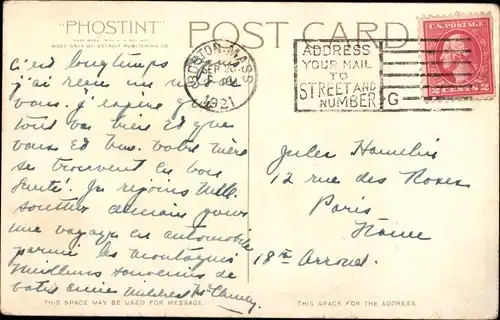 "PHOSTINT"
POST CARD
MADE ONLY BY DETROIT PUBLISHING CO.
BOSTON, MASS
SEP 30
1921
ADDRESS
YOUR MAIL
TO
STREET AND
NUMBER
G
2 CENTS 2
c'est longtemps
j'ai reçu un
vous. j'espère que
tout va bien et que
vous et
votre mère
se trouvent en bon
santé. Je rejoins
demain pour
une voyage en automobile
parmi les montagnes
Meilleurs souvenirs de
votre amie Mildred
Jules Hamelin
12 rue des Roses
Paris
18me Arrond.
THIS SPACE MAY BE USED FOR MESSAGE.
THIS SPACE FOR THE ADDRESS